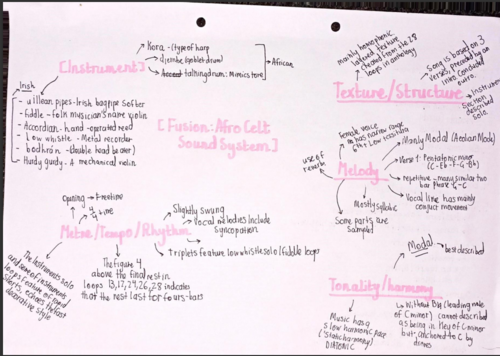 [Instruments]
Kora - (type of harp
djembe (goblet drum)
talking drum: Mimics tone
African
Irish
- uillean pipes - Irish bagpipe softer
- fiddle - folk musician's name violin
- Accordian - hand-operated reed
- Low whistle - Metal recorder
- bodhrán - (double head beater)
- Hurdy gurdy - A mechanical violin
[Fusion: Afro Celt
Sound System]
mainly homophonic
layered texture
created from the 28
loops in anthology
Song is based on 3
verses, preceded by an
intro concluded
outro.
Texture/Structure
Instrumental
section
described
solo.
Female voice
has narrow range
6th + low tessitura
use of
reverb
Melody
Mainly Modal (Aeolian Mode)
Verse 1: Pentatonic minor
(C-Eb-F-G-Bb)
repetitive - many similar two
bar phase
Vocal line has mainly
conjunct movement
Mostly syllabic
Some parts are
sampled
Opening → Free time
4/4 time
Slightly swung
Vocal melodies include
syncopation
Metre/Tempo/Rhythm
Triplets feature, low whistle solo/fiddle loops
The instruments solo
and some of instruments
loops feature of rapid
decorative style
The figure 4
above the final rest in
loops 13, 17, 24, 26, 28 indicates
that the rest last for fours-bars
Modal
best described
Tonality/harmony
Without Bb (leading note
of C minor) cannot described
as being in Key of C minor
but, anchored to C by
drones
Music has a
slow harmonic pace
('Static harmony')
DIATONIC